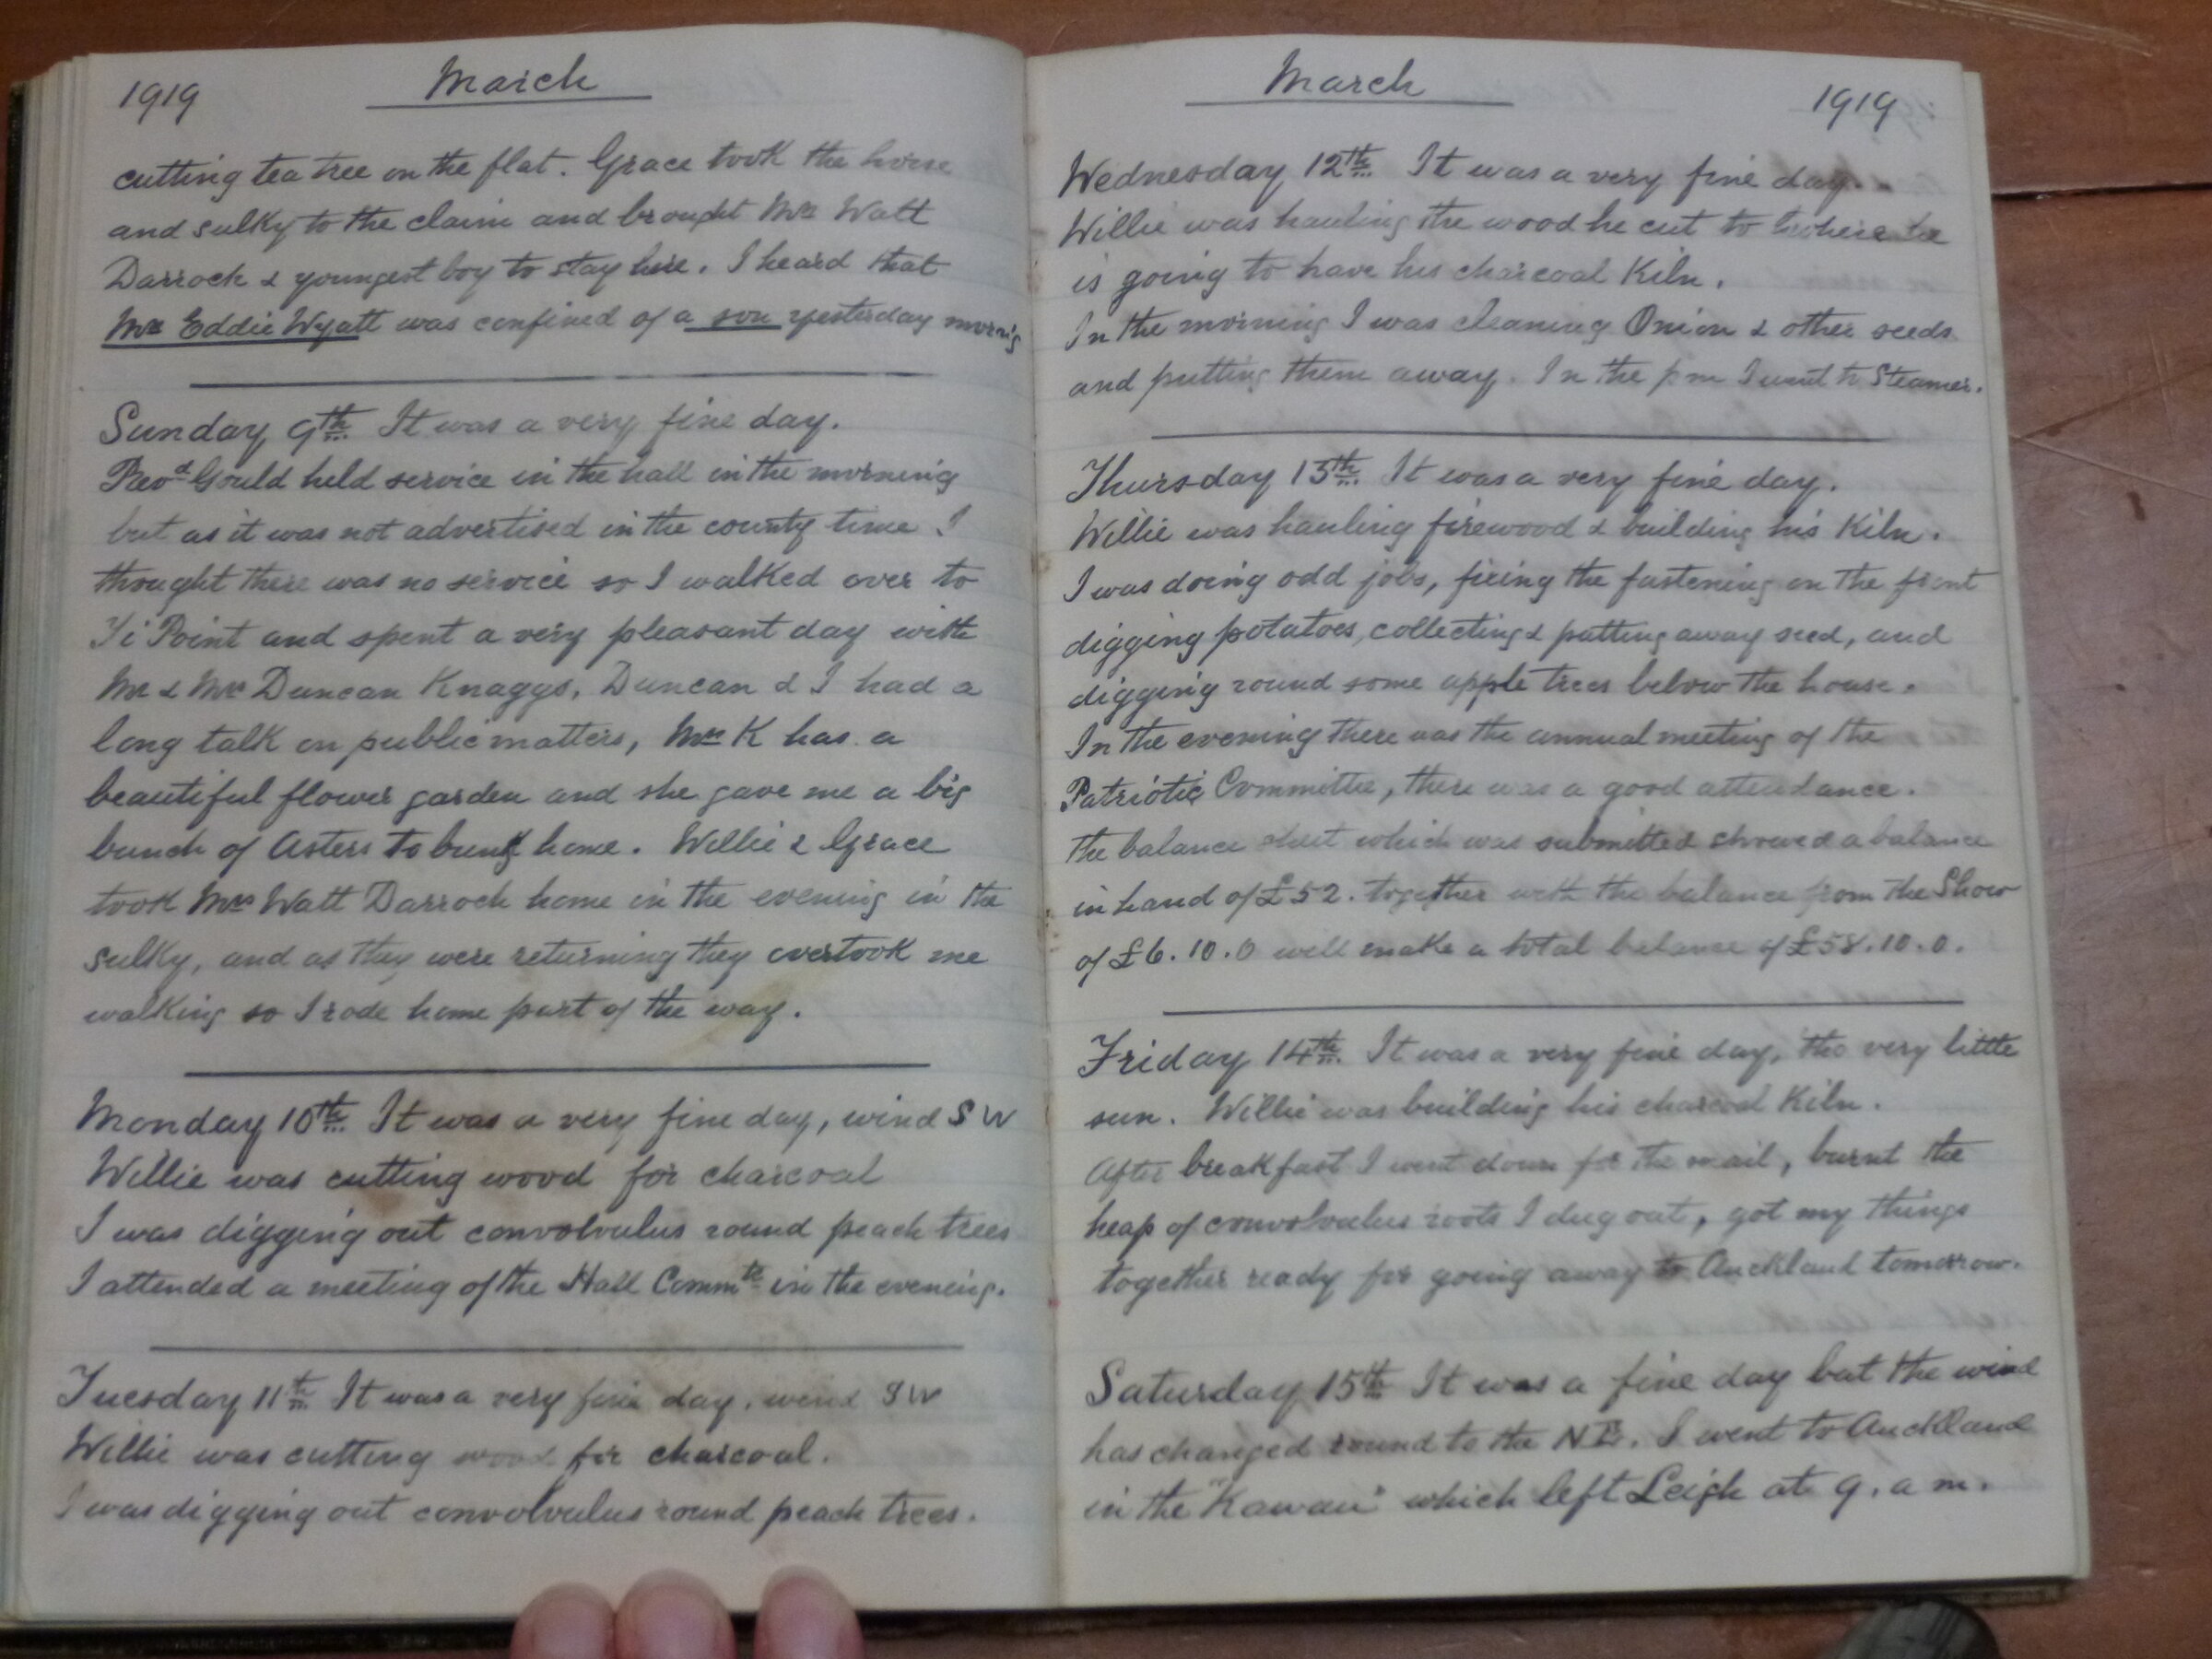 1919 March
cutting tea tree on the flat. Grace took the horse
and sulky to the claim and brought Mrs Watt
Darroch & youngest boy to stay here. I heard that
Mrs Eddie Wyatt was confined of a son yesterday morning
Sunday 9th It was a very fine day.
Revd Gould held service in the hall in the morning
but as it was not advertised in the county time I
thought there was no service so I walked over to
Ti Point and spent a very pleasant day with
Mr & Mrs Duncan Knaggs, Duncan & I had a
long talk on public matters, Mrs K has a
beautiful flower garden and she gave me a big
bunch of Asters to bring home. Willie & Grace
took Mrs Watt Darroch home in the evening in the
sulky, and as they were returning they overtook me
walking so I rode home part of the way.
Monday 10th It was a very fine day, wind S W
Willie was cutting wood for charcoal
I was digging out convolvulus round peach trees
I attended a meeting of the Hall Commte in the evening.
Tuesday 11th It was a very fine day, wind S W
Willie was cutting wood for charcoal.
I was digging out convolvulus round peach trees.
March 1919
Wednesday 12th It was a very fine day.
Willie was hauling the wood he cut to where he
is going to have his charcoal Kiln.
In the morning I was cleaning Onion & other seeds
and putting them away. In the pm I went to Steamer.
Thursday 13th It was a very fine day.
Willie was hauling firewood & building his Kiln.
I was doing odd jobs, fixing the fastening on the front
digging potatoes, collecting & putting away seed, and
digging round some apple trees below the house.
In the evening there was the annual meeting of the
Patriotic Committee, there was a good attendance.
The balance sheet which was submitted showed a balance
in hand of £52. together with the balance from the Show
of £6.10.0 will make a total balance of £58.10.0.
Friday 14th It was a very fine day, tho very little
sun. Willie was building his charcoal Kiln.
After breakfast I went down for the mail, burnt the
heap of convolvulus roots I dug out, got my things
together ready for going away to Auckland tomorrow.
Saturday 15th It was a fine day but the wind
has changed round to the N E. I went to Auckland
in the "Kawau" which left Leigh at 9. a m.